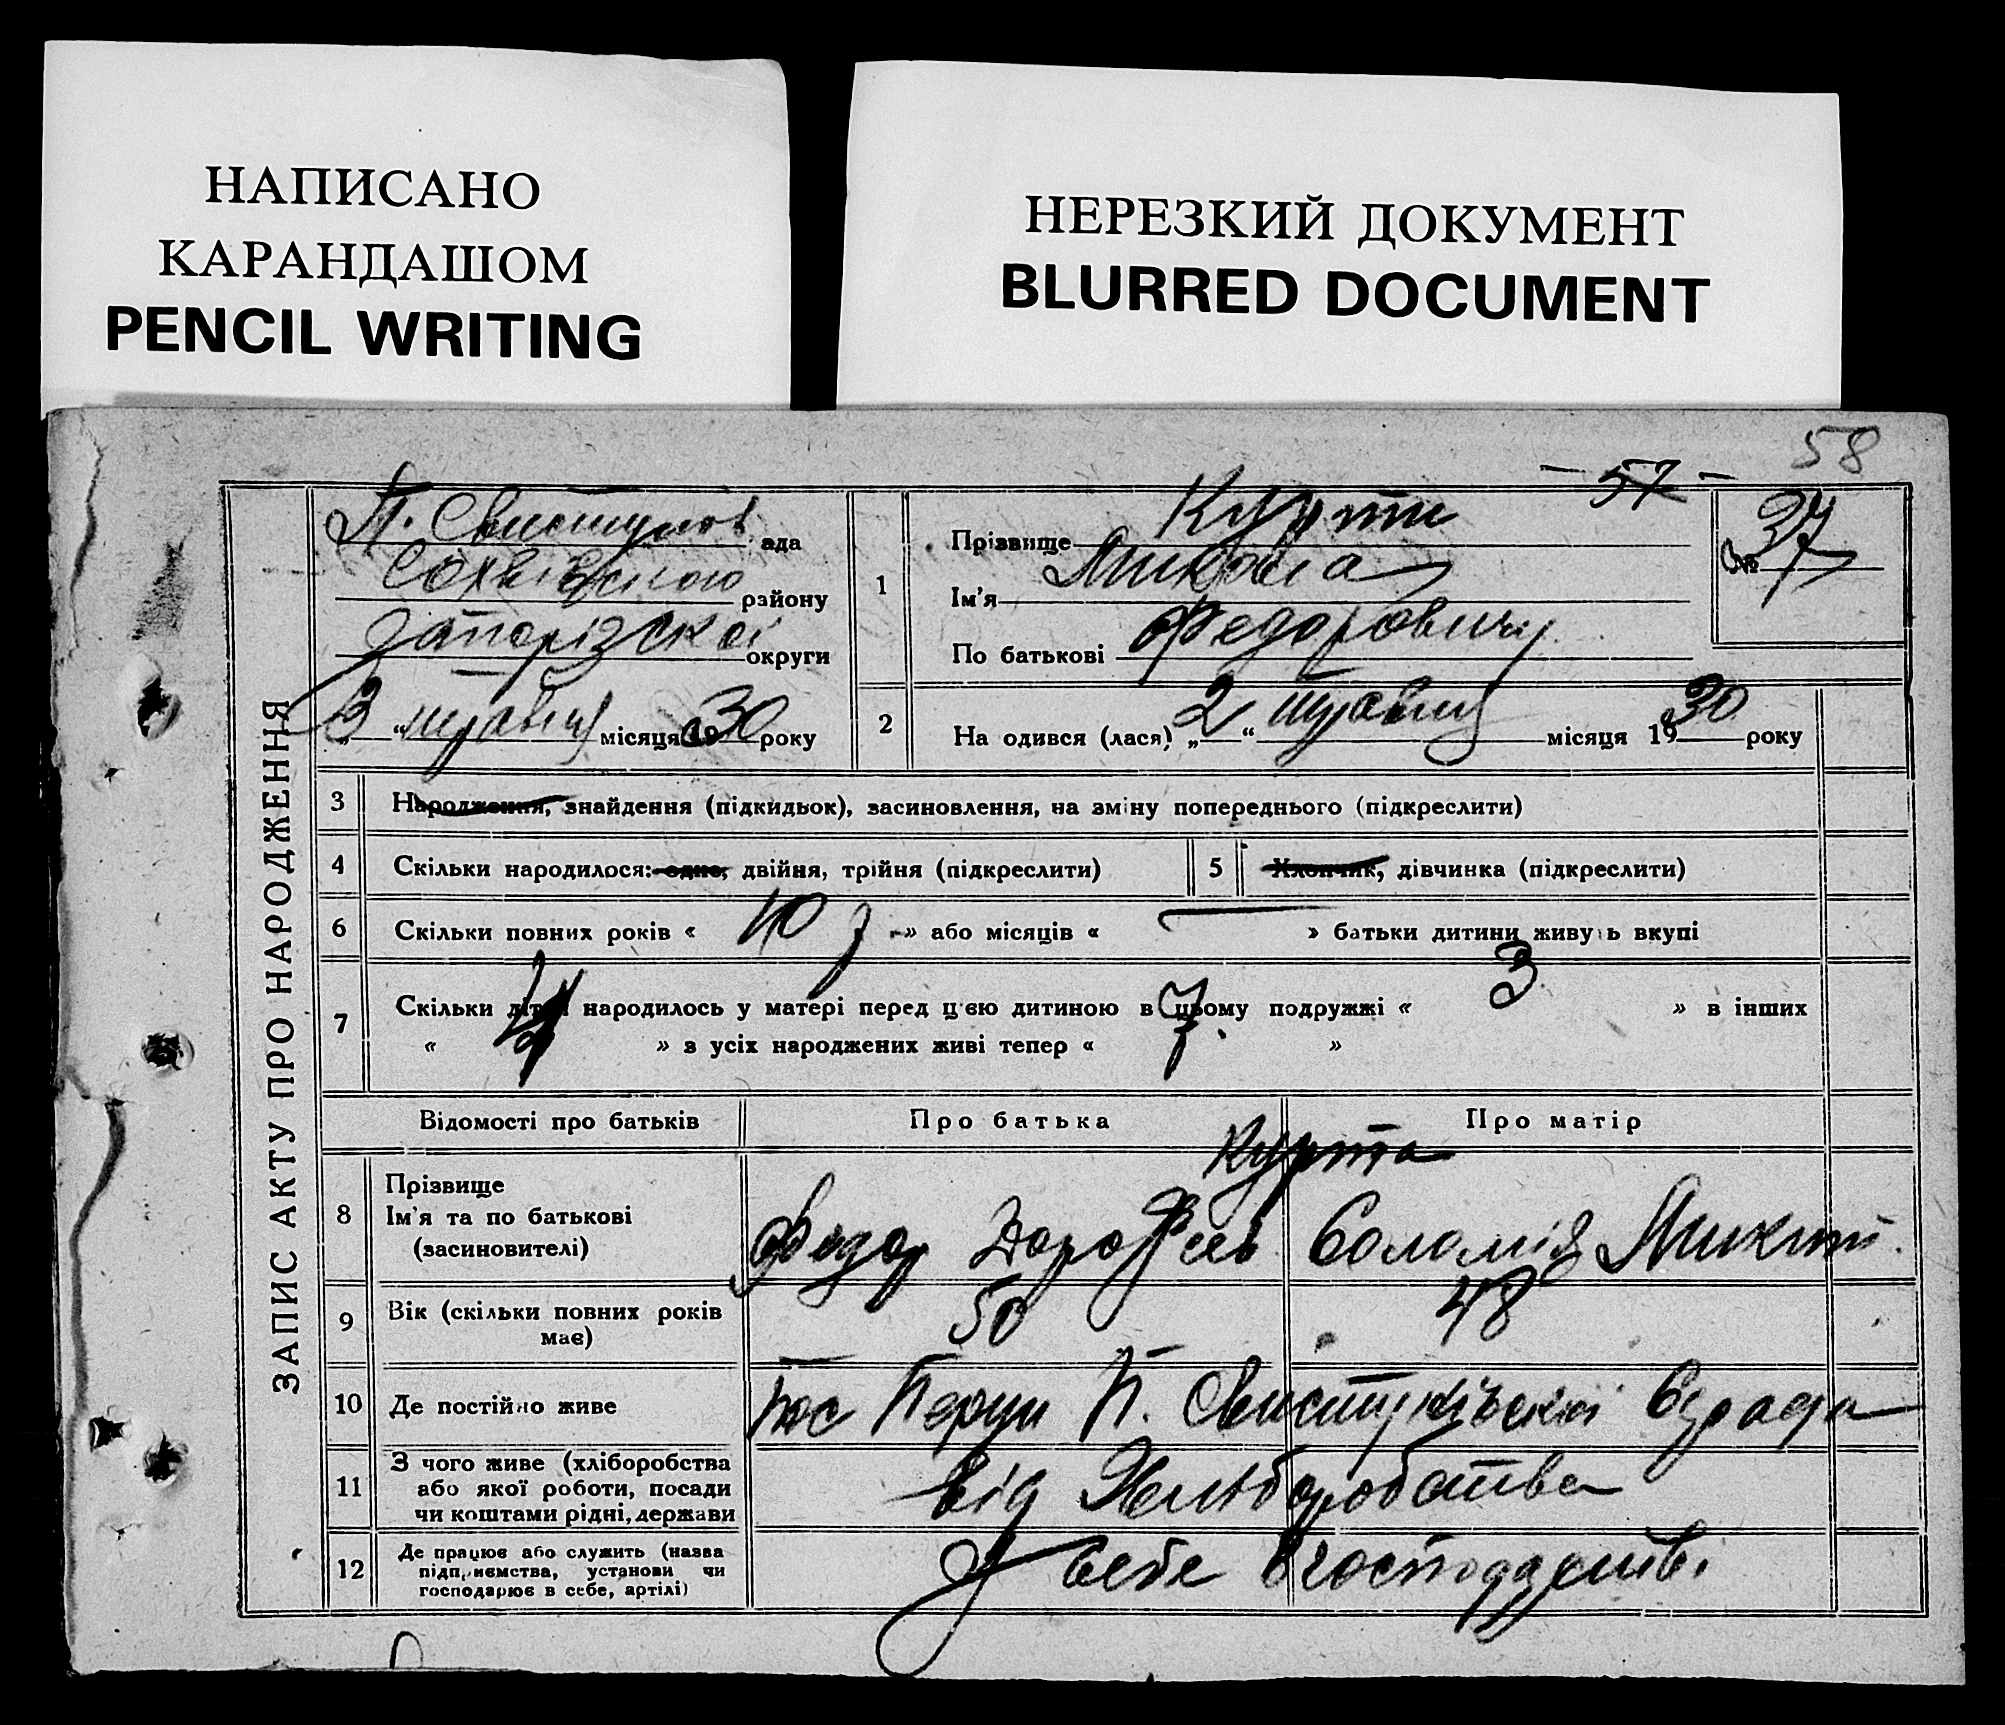 НАПИСАНО
КАРАНДАШОМ
PENCIL WRITING
НЕРЕЗКИЙ ДОКУМЕНТ
BLURRED DOCUMENT
58
57
ЗАПИС АКТУ ПРО НАРОДЖЕННЯ
П. Свистунов ада
району
Запорізской округи
3 „ “ травня місяця 1930 року
1
Прізвище Курти
Ім'я Микола
По батькові Федорович
№ 37
2
На одився (лася) „2“ травня місяця 1930 року
3 Народження, знайдення (підкидьок), засиновлення, на зміну попереднього (підкреслити)
4 Скільки народилося: одно, двійня, трійня (підкреслити)
5 Хлопчик, дівчинка (підкреслити)
6 Скільки повних років « 10 » або місяців « — » батьки дитини живуть вкупі
7 Скільки дітей народилось у матері перед цією дитиною в цьому подружжі « 3 » в інших
« 4 » з усіх народжених живі тепер « 7. »
Відомості про батьків Про батька Про матір
Курта
8 Прізвище
Ім'я та по батькові
(засиновителі)
Федор Дорофеев Соломія Микит.
9 Вік (скільки повних років
має)
50 48
10 Де постійно живе
пос П. Свистунівскої
11 З чого живе (хліборобства
або якої роботи, посади
чи коштами рідні, держави
Від Хліборобства
12 Де працює або служить (назва
підприємства, установи чи
господарює в себе, артілі)
У себе в господарстві